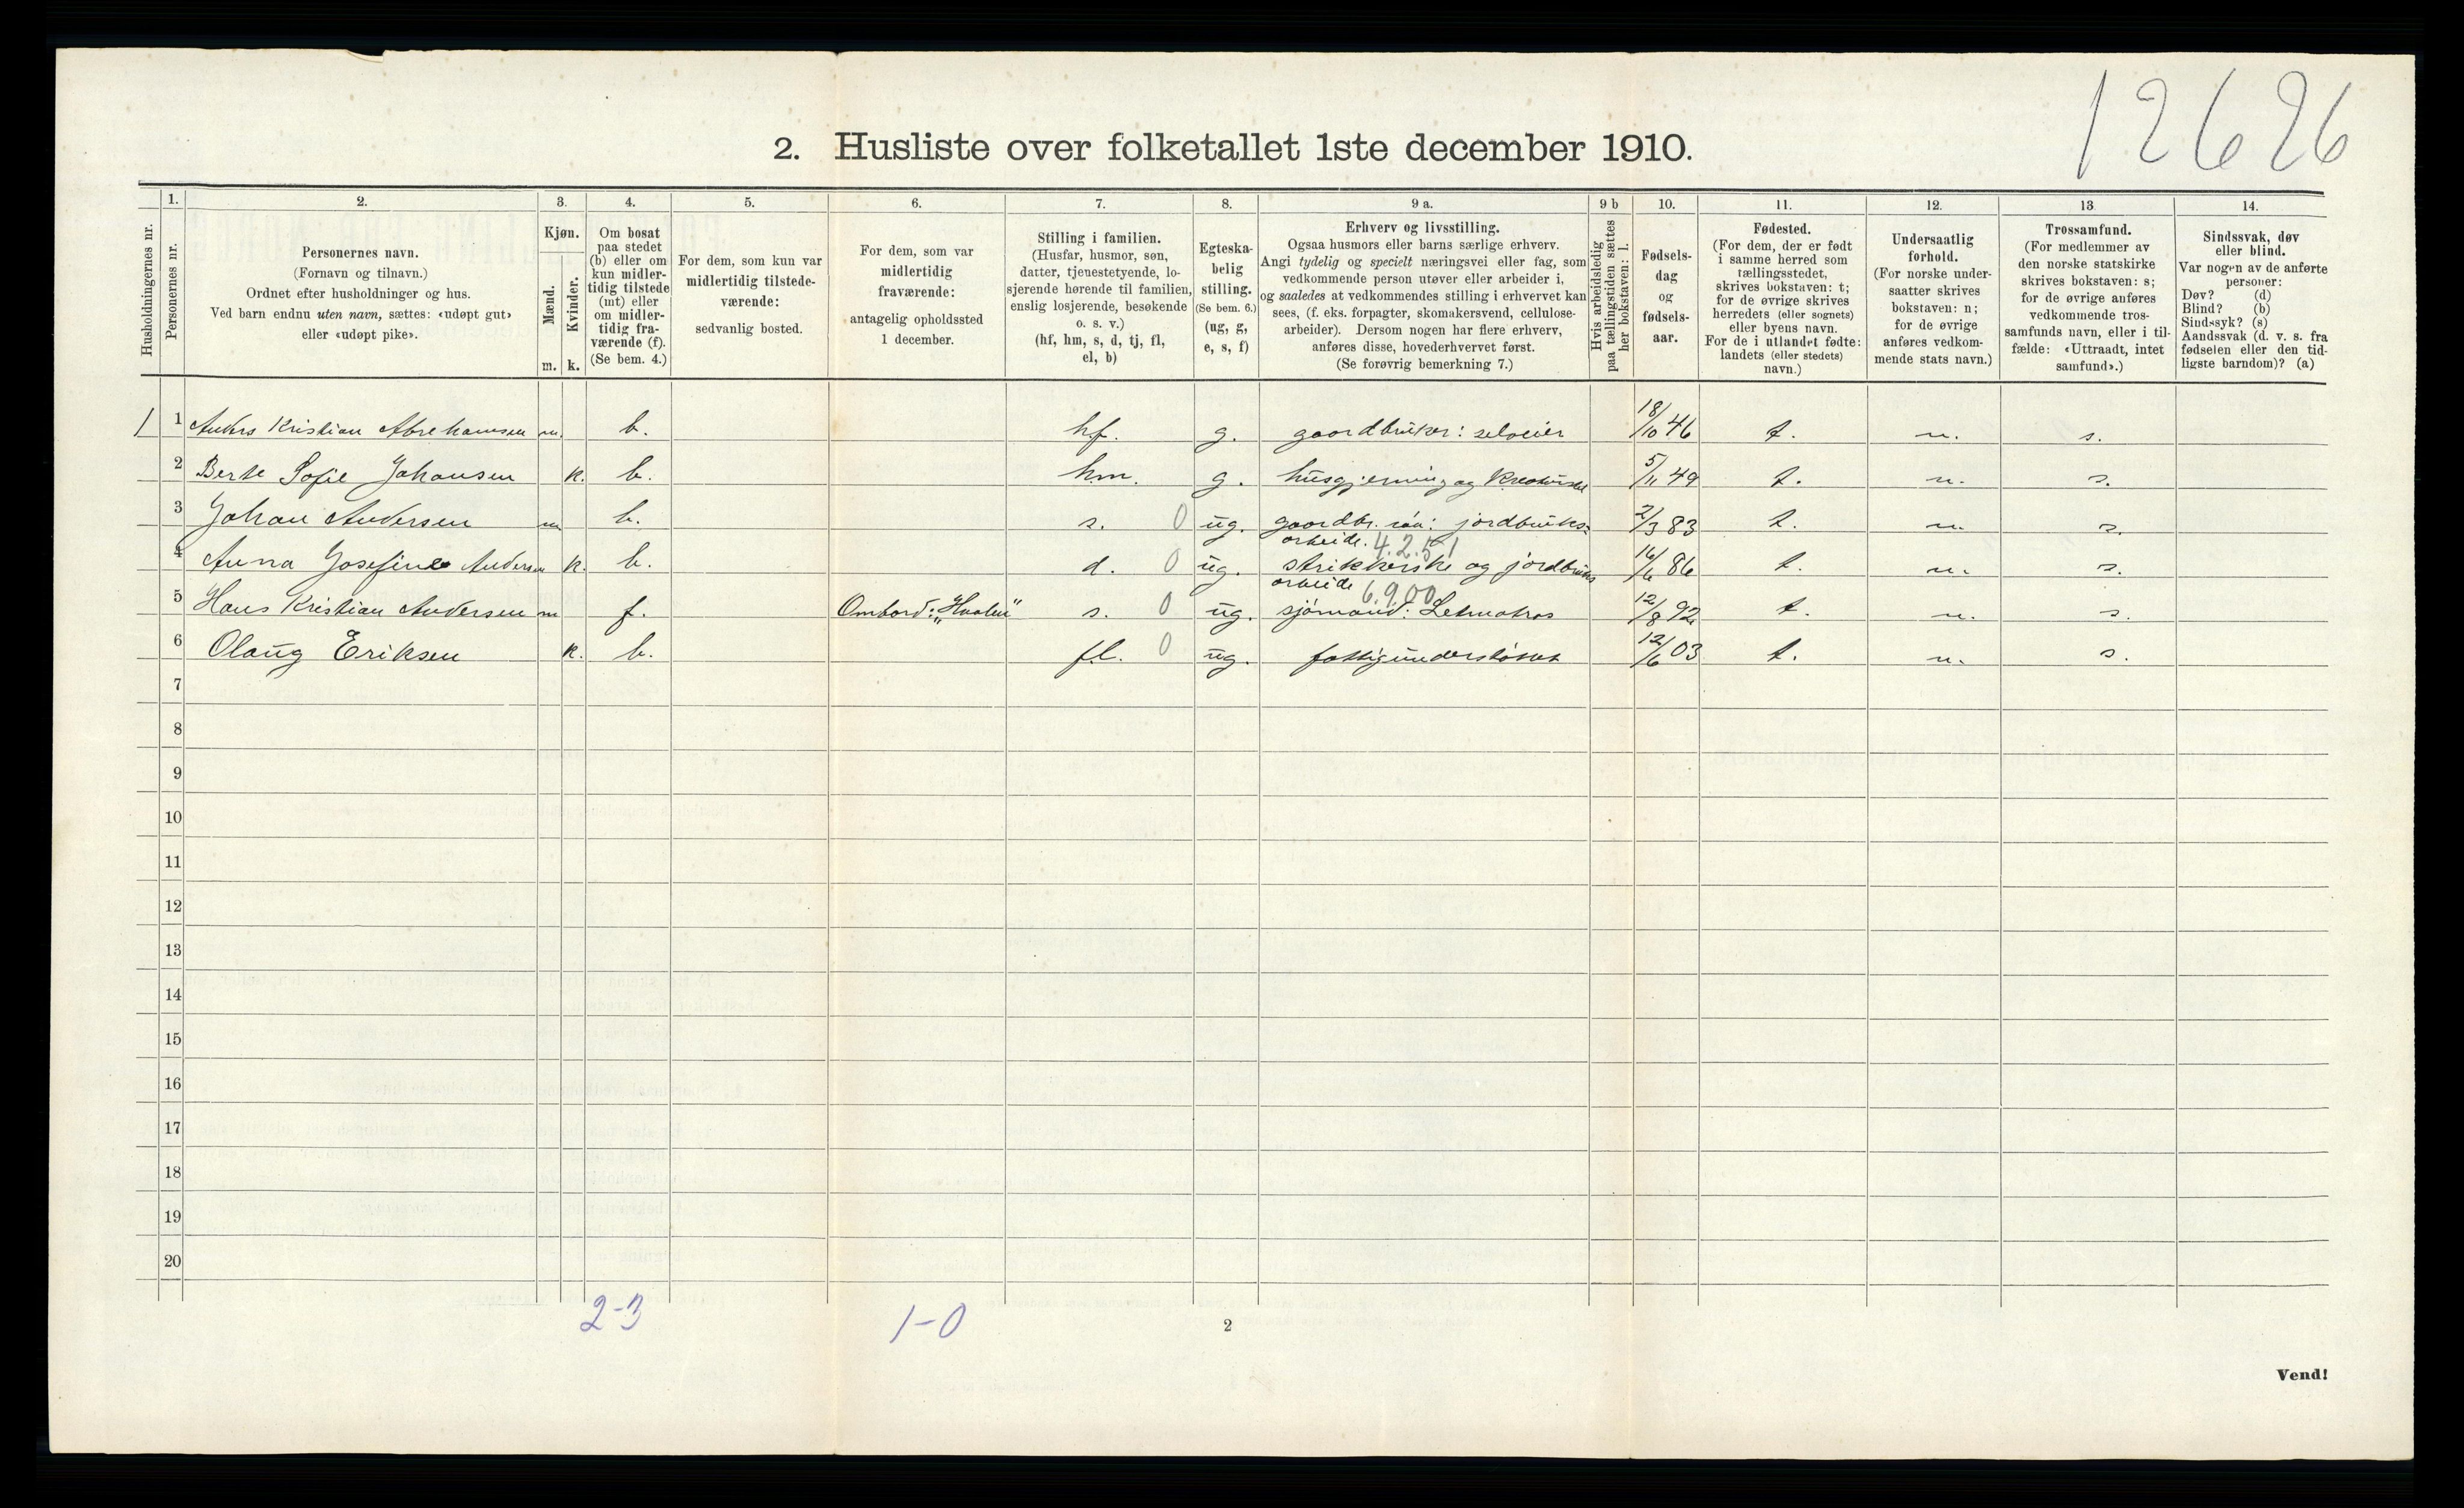 12626
2. Husliste over folketallet 1ste december 1910.
Husholdningernes nr.
1.
Personernes nr.
2.
Personernes navn.
(Fornavn og tilnavn.)
Ordnet efter husholdninger og hus.
Ved barn endnu uten navn, sættes: «udøpt gut»
eller «udøpt pike».
3.
Kjøn.
Mænd.
Kvinder.
m. k.
4.
Om bosat
paa stedet
(b) eller om
kun midler-
tidig tilstede
(mt) eller
om midler-
tidig fra-
værende (f).
(Se bem. 4.)
5.
For dem, som kun var
midlertidig tilstede-
værende:
sedvanlig bosted.
6.
For dem, som var
midlertidig
fraværende:
antagelig opholdssted
1 december.
7.
Stilling i familien.
(Husfar, husmor, søn,
datter, tjenestetyende, lo-
sjerende hørende til familien,
enslig losjerende, besøkende
o. s. v.)
(hf, hm, s, d, tj, fl,
el, b)
8.
Egteska-
belig
stilling.
(Se bem. 6.)
(ug, g,
e, s, f)
9 a.
Erhverv og livsstilling.
Ogsaa husmors eller barns særlige erhverv.
Angi tydelig og specielt næringsvei eller fag, som
vedkommende person utøver eller arbeider i,
og saaledes at vedkommendes stilling i erhvervet kan
sees, (f. eks. forpagter, skomakersvend, cellulose-
arbeider). Dersom nogen har flere erhverv,
anføres disse, hovederhvervet først.
(Se forøvrig bemerkning 7.)
9 b
Hvis arbeidsledig
paa tællingstiden sættes
her bokstaven: l.
10.
Fødsels-
dag
og
fødsels-
aar.
11.
Fødested.
(For dem, der er født
i samme herred som
tællingsstedet,
skrives bokstaven: t;
for de øvrige skrives
herredets (eller sognets)
eller byens navn.
For de i utlandet fødte:
landets (eller stedets)
navn.)
12.
Undersaatlig
forhold.
(For norske under-
saatter skrives
bokstaven: n;
for de øvrige
anføres vedkom-
mende stats navn.)
13
Trossamfund.
(For medlemmer av
den norske statskirke
skrives bokstaven: s;
for de øvrige anføres
vedkommende tros-
samfunds navn, eller i til-
fælde: «Uttraadt, intet
samfund».)
14.
Sindssvak, døv
eller blind.
Var nogen av de anførte
personer:
Døv? (d)
Blind? (b)
Sindssyk? (s)
Aandssvak (d. v. s. fra
fødselen eller den tid-
ligste barndom)? (a)
1 1 Anders Kristian Abrehamsen m. b. hf. g. gaardbruker: selveier 18/10 46 t. n. s.
2 Berte Sofie Johansen k. b. hm. g. husgjerning og Kreaturstel 5/11 49 t. n. s.
3 Johan Andersen m b. s. 0 ug. gaardbr. søn: jordbruks- 2/3 83 t. n. s.
arbeide. 4.2.51
4 Anna Josefine Andersen k. b. d. 0 ug. strikkerske og jordbruks 16/6 86 t. n. s.
arbeide 6.9.00
5 Hans Kristian Andersen m f. Ombord: „Hvalen" s. 0 ug. sjømand: Letmatros 12/8 92 t. n. s.
6 Olaug Eriksen k. b. fl. 0 ug. fattigunderstøttet 12/6 03 t. n. s.
7
8
9
10
11
12
13
14
15
16
17
18
19
20
2-3 1-0
2
Vend!